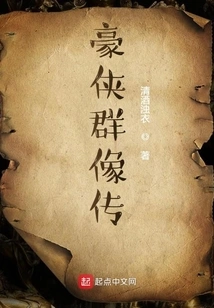 豪侠群像传
清酒浊衣 ◎ 著
起点中文网